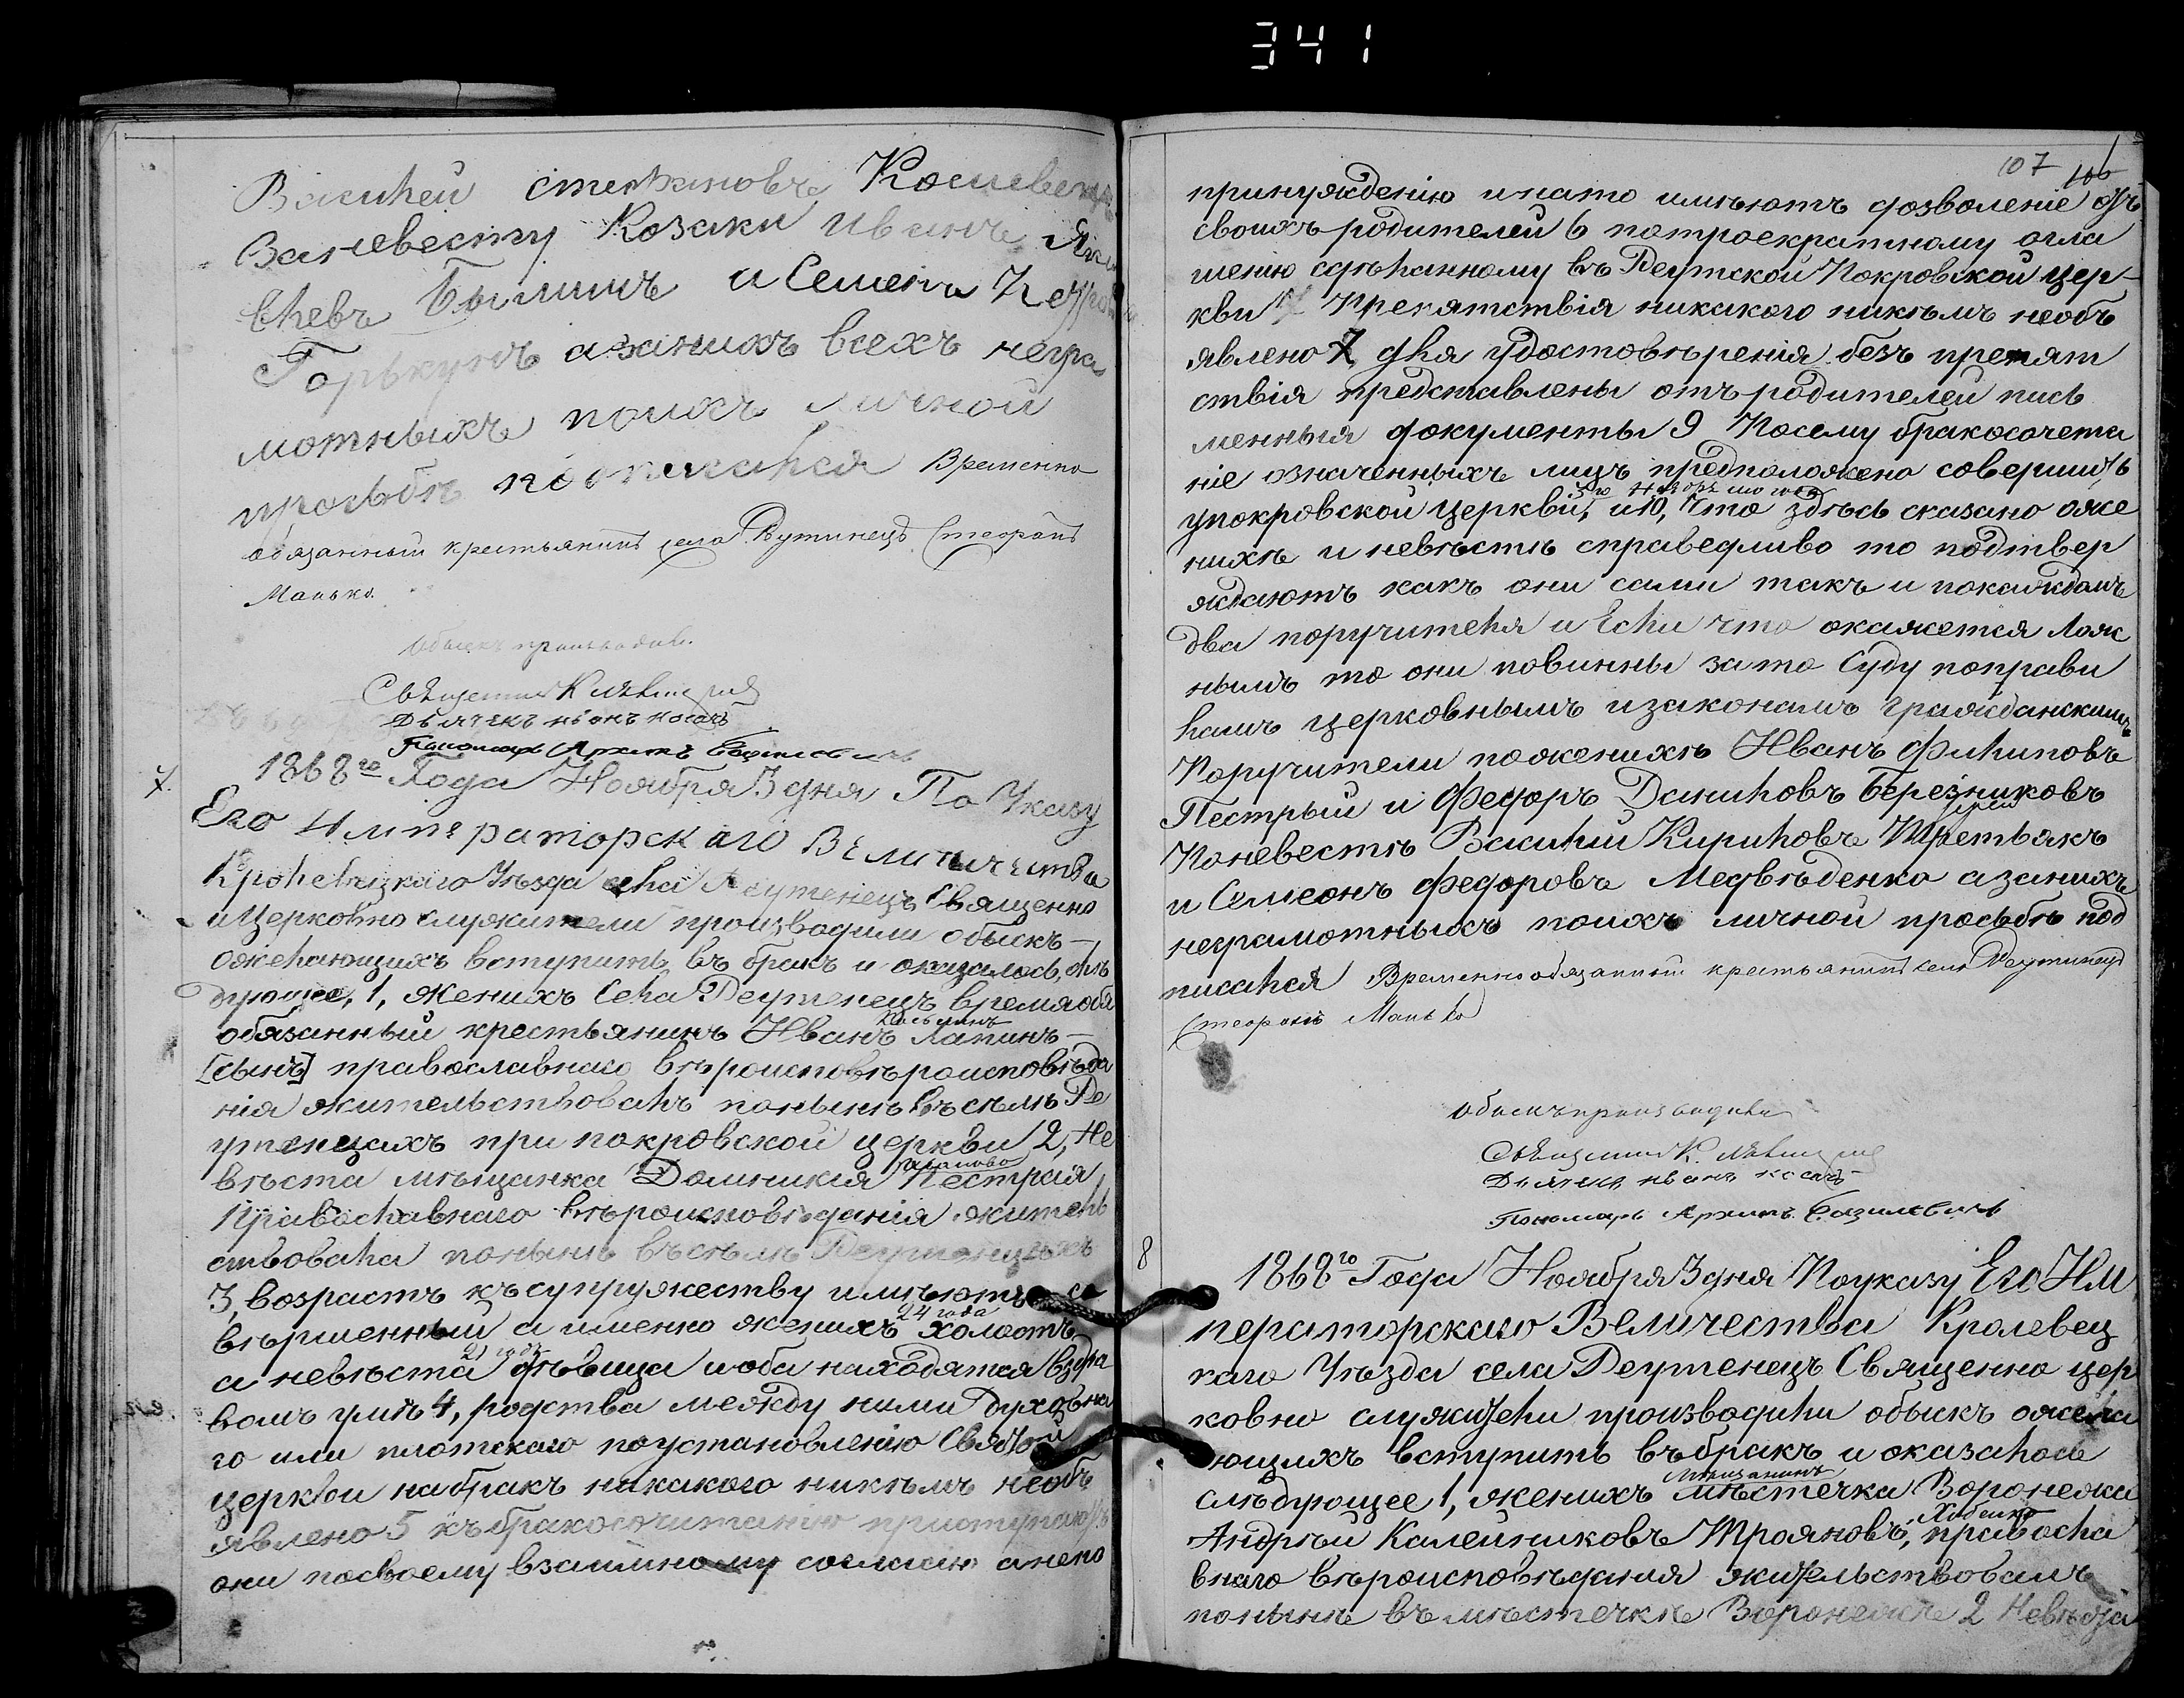 341
Василей стефановъ Кошевецъ
Заневесту Козаки Иванъ
Бышикъ и Семенъ
Горькунъ азанихъ всехъ негра
мотныхъ поихъ личной
просьбѣ пописался Временно
обязанный крестьянинъ села Стефанъ
Манько.
Обыскъ производил.
Священник К.
Дьячекъ иванъ носачь
Пономарь Архипъ Базилевичъ
7.
1868го Года Ноября 3 дня По Указу
Его Императорскаго Величества
Кролевецкаго Уѣзда села Деутенецъ Священно
и Церковно служители производили обыскъ –
ожелающихъ вступить въ бракъ и оказалось, слѣ
дующее, 1, Женихъ Села Деутенецъ времяобя
обязанный крестьянинъ Иванъ Лапинъ –
[сынъ] православнаго вѣроисповѣроисповѣда
нія жительствовалъ понынѣ въ селѣ Де
утенецахъ при покровской церкви 2, Не
вѣста мѣщанка Домникия Пестрая
Православнаго вѣроисповѣдания житель
ствовала понынѣ въ селѣ Деутенецахъ
3, возрастъ къ супружеству имѣютъ со
вѣршенный а именно женихъ 24 года холостъ
а невѣста 21 годъ дѣвица иоба находятся вздра
вомъ умѣ 4, родства между ними духовна
го или плотскаго поустановлению Святой
церкви на бракъ никакого никѣмъ необъ
явлено 5 къ бракосочитанию приступаютъ
они посвоему взаимному согласию анепо
107
106
принуждению и на то имѣютъ дозволеніе отъ
своихъ родителей 6 потроекратному огла
шенію сдѣланному въ Деутской Покровской цер–
кви Препятствія никакого никѣмъ необъ
явлено 7 для удостовѣренія безъ препят
ствія представлены отъ родителей пись
менныя документы 9 Посему бракосочета
ніе означенныхъ лицъ предположено совершить
упокровской церкви, и 10, Что здѣсь сказано оже
нихѣ и невѣстѣ справедливо то подтвер
ждаютъ какъ они сами такъ и покаждомъ
два поручителя и Если что окажется Лож
нымъ то они повинны зато Суду поправи
ламъ церковнымъ изаконамъ гражданскимъ
Поручители поженихѣ Иванъ Филиповъ
Пестрый и Федоръ Даниловъ Березниковъ
Поневестѣ Василий Кириловъ Третьякъ
и Симеонъ Федоровъ Медвѣденко азанихъ
неграмотныхъ поихъ личной просьбѣ под
писался Временнообязанный крестьянинъ села Деутинецъ
Стефанъ Манько
обыскъ производили
Священник К.
Дьячекъ иванъ носачь
Пономарь Архипъ Базилевичъ
8
1868го Года Ноября 3 дня Поуказу Его Им
ператорскаго Величества Кролевец
каго Уѣзда села Деутенецъ Священно цер
ковно служители производили обыскъ ожела
ющихъ вступить въ бракъ и оказалось
Мещанинъ
слѣдующее 1, женихъ мѣстечка Воронежа
Андрѣй Калейниковъ Трояновъ, правосла
внаго вѣроисповѣдания жительствовалъ
понынѣ въ мѣстечкѣ Воронежѣ 2 Невѣста